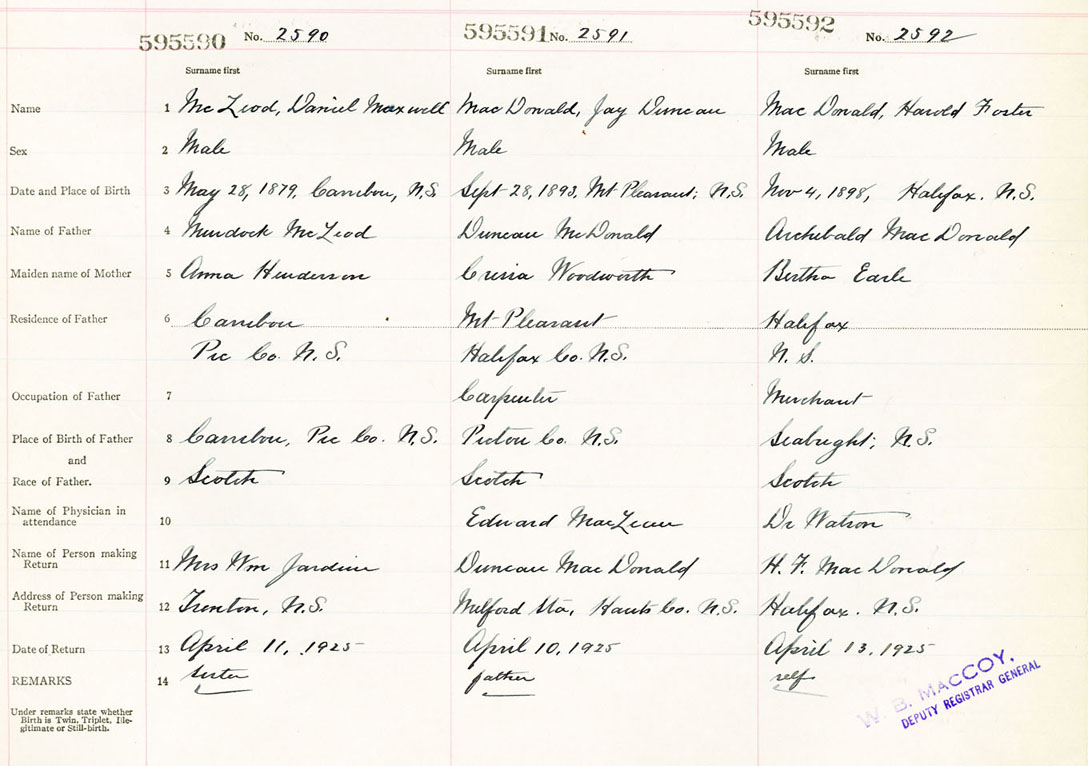 595590 No. 2590 595591 No. 2591 595592 No. 2592
Surname first Surname first Surname first
Name 1 McLeod, Daniel Maxwell MacDonald, Jay Duncan MacDonald, Harold Foster
Sex 2 Male Male Male
Date and Place of Birth 3 May 28, 1879, Caribou, N.S. Sept 28, 1893, Mt Pleasant, N.S. Nov 4, 1898, Halifax. N.S.
Name of Father 4 Murdock McLeod Duncan McDonald Archibald MacDonald
Maiden name of Mother 5 Anna Henderson Woodworth Bertha Earle
Residence of Father 6 Caribou Mt Pleasant Halifax
Pic Co. N.S. Halifax Co. N.S. N.S.
Occupation of Father 7 Carpenter Merchant
Place of Birth of Father 8 Caribou, Pic Co. N.S. Pictou Co. N.S. Seabright, N.S.
and
Race of Father. 9 Scotch Scotch Scotch
Name of Physician in
attendance 10 Edward Dr Watson
Name of Person making
Return 11 Mrs Wm Jardine Duncan MacDonald H. F. MacDonald
Address of Person making
Return 12 Trenton, N.S. Milford Sta, Hants Co. N.S. Halifax. N.S.
Date of Return 13 April 11, 1925 April 10, 1925 April 13, 1925
REMARKS 14 sister father self
Under remarks state whether
Birth is Twin, Triplet, Ille-
gitimate or Still-birth.
W. B. MacCOY,
DEPUTY REGISTRAR GENERAL